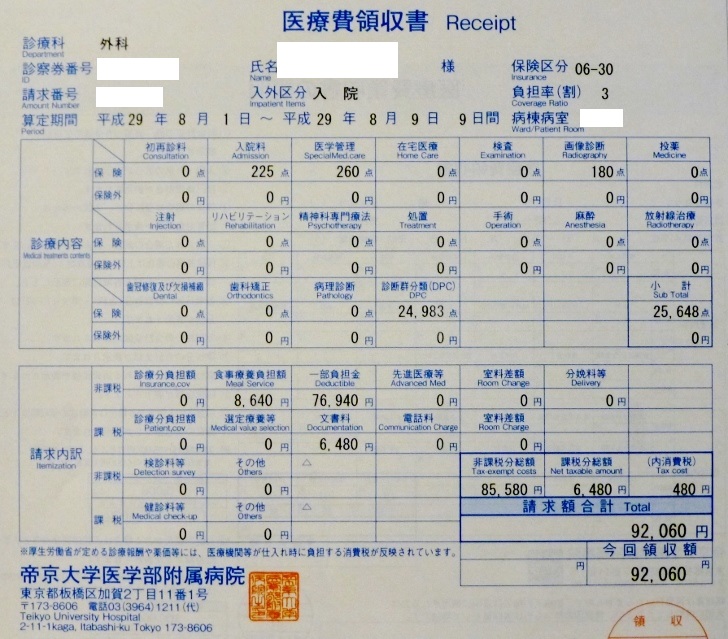 医療費領収書 Receipt
診療科 外科
Department
診察券番号 氏名 様 保険区分 06-30
ID Name Insurance
請求番号 入外区分 入 院 負担率(割) 3
Amount Number Impatient Items Coverage Ratio
算定期間 平成 29 年 8 月 1 日 ～ 平成 29 年 8 月 9 日 9 日間 病棟病室
Period Ward/Patient Room
初再診料 入院料 医学管理 在宅医療 検査 画像診断 投薬
Consultation Admission SpecialMed.care Home Care Examination Radiography Medicine
保険 0 点 225 点 260 点 0 点 0 点 180 点 0 点
保険外 0 円 0 円 0 円 0 円 0 円 0 円 0 円
注射 リハビリテーション 精神科専門療法 処置 手術 麻酔 放射線治療
Injection Rehabilitation Psychotherapy Treatment Operation Anesthesia Radiotherapy
診療内容
Medical treatments contents
保険 0 点 0 点 0 点 0 点 0 点 0 点 0 点
保険外 0 円 0 円 0 円 0 円 0 円 0 円 0 円
歯冠修復及び欠損補綴 歯科矯正 病理診断 診断群分類(DPC) 小 計
Dental Orthodontics Pathology DPC Sub Total
保険 0 点 0 点 0 点 24,983 点 25,648 点
保険外 0 円 0 円 0 円 0 円 0 円
診療分負担額 食事療養負担額 一部負担金 先進医療等 室料差額 分娩料等
Insurance,cov Meal Service Deductible Advanced Med Room Change Delivery
非課税 0 円 8,640 円 76,940 円 0 円 0 円 0 円
診療分負担額 選定療養等 文書料 電話料 室料差額
Patient,cov Medical value selection Documentation Communication Charge Room Charge
課税 0 円 0 円 6,480 円 0 円 0 円
請求内訳
Itemization
検診料等 その他 △ 非課税分総額 課税分総額 (内消費税)
Detection survey Others Tax-exempt costs Net taxable amount Tax cost
非課税 0 円 0 円 85,580 円 6,480 円 480 円
健診料等 その他 △ 請求額合計 Total
Medical check-up Others
課税 0 円 0 円 92,060 円
※厚生労働省が定める診療報酬や薬価等には、医療機関等が仕入れ時に負担する消費税が反映されています。 今回領収額
円 92,060 円
帝京大学医学部附属病院
東京都板橋区加賀2丁目11番1号
〒173-8606 電話03(3964)1211(代)
Teikyo University Hospital
2-11-1kaga, Itabashi-ku Tokyo 173-8606
領 収